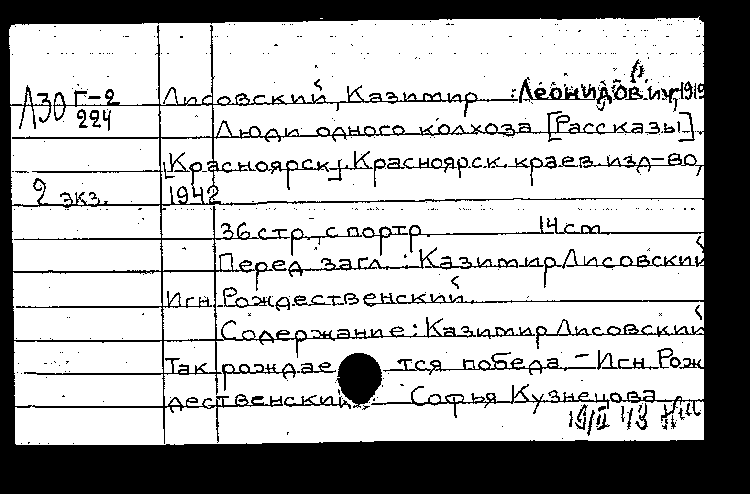 Л30 Г-2
224
Лисовский, Казимир Леонидович, 1919
Люди одного колхоза [Рассказы].
[Красноярск]. Красноярск. краев. изд-во,
2 экз. 1942
36 стр., с портр. 14 cm
Перед загл.: Казимир Лисовский
Игн. Рождественский.
Содержание: Казимир Лисовский
Так рождается победа. - Игн. Рож
дественский. Софья Кузнецова